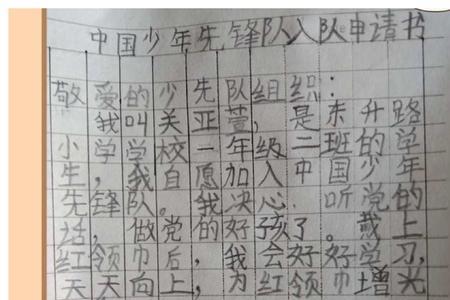 中国少年先锋队入队申请书
敬爱的少先队组织：
我叫关亚萱，是东升路
小学学校一年级二班的学
生，我自愿加入中国少年
先锋队。我决心听党的
话，做党的好孩了。戴上
红领巾后，我会好好学习，
天天向上，为红领巾增光